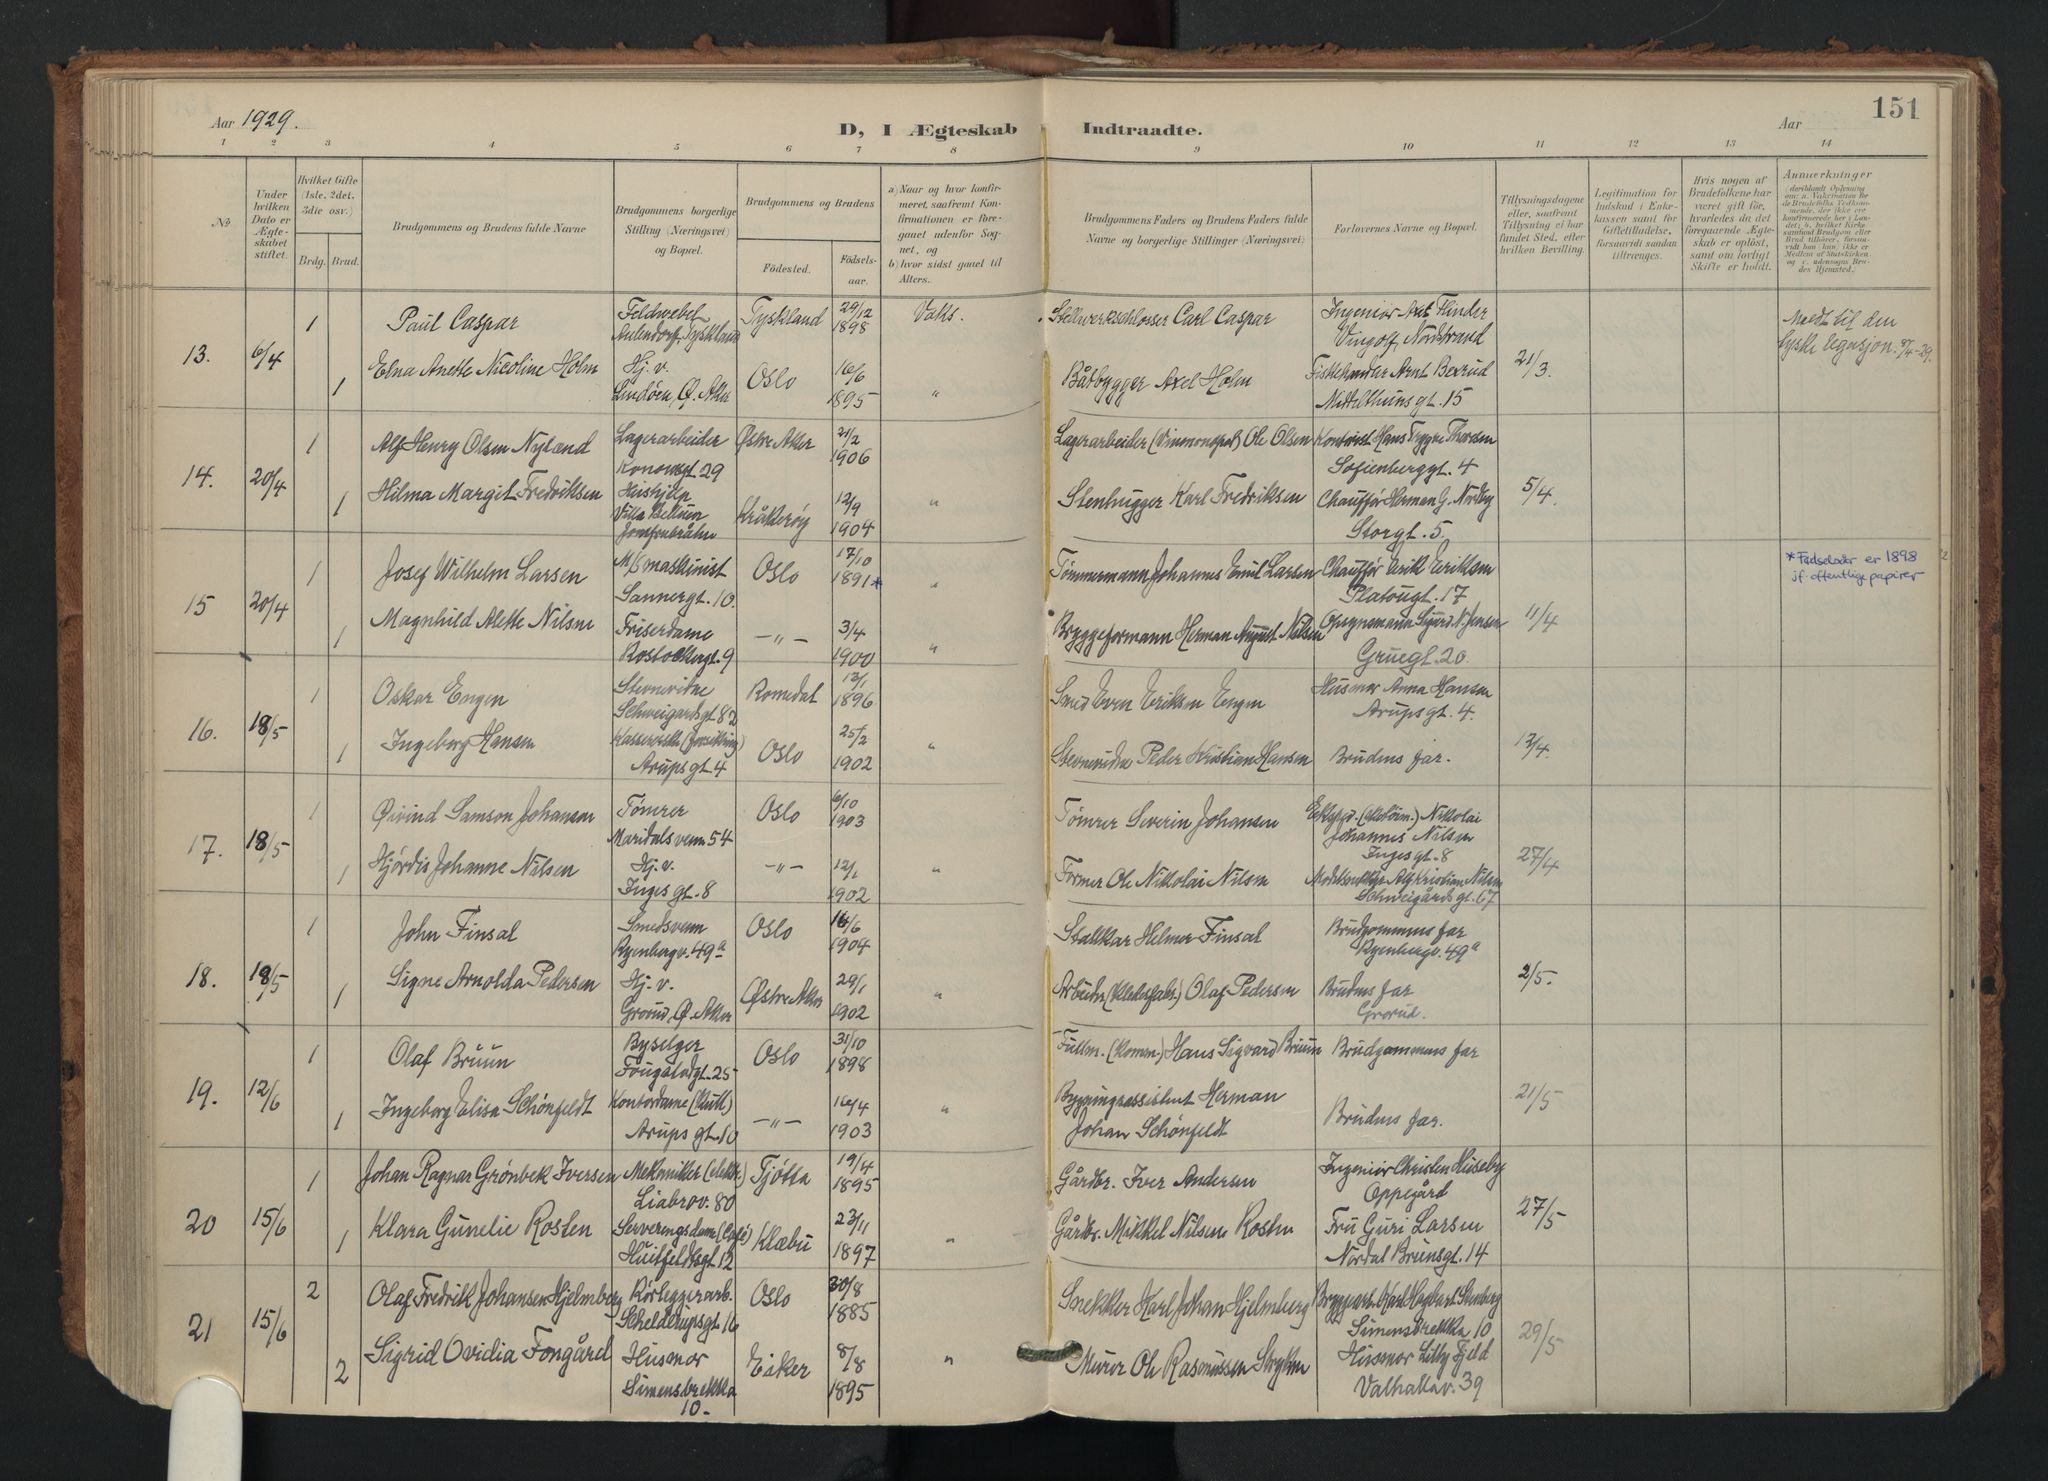 Aar 1929.
D, I Ægteskab Indtraadte.
Aar
151
1 2 3 4 5 6 7 8 9 10 11 12 13 14
No
Under hvilken Dato er Ægteskabet stiftet.
Hvilket Gifte (1ste, 2det, 3die osv.)
Brdg. Brud.
Brudgommens og Brudens fulde Navne
Brudgommens borgerlige Stilling (Næringsvei) og Bopæl.
Brudgommens og Brudens
Födested.
Födselsaar.
a) Naar og hvor konfirmeret, saafremt Konfirmationen er foregaaet udenfor Sognet, og
b) hvor sidst gaaet til Alters.
Brudgommens Faders og Brudens Faders fulde Navne og borgerlige Stillinger (Næringsvei)
Forlovernes Navne og Bopæl.
Tillysningsdagene eller, saafremt Tillysning ei har fundet Sted, efter hvilken Bevilling.
Legitimation for Indskud i Enkekassen samt for Giftetilladelse, forsaavidt saadan tiltrænges.
Hvis nogen af Brudefolkene har været gift för, hvorledes da det foregaaende Ægteskab er oplöst, samt om lovligt Skifte er holdt.
Anmerkninger
13. 6/4
1 Paul Caspar Feldwebel Aulendorf, Tyskland Tyskland 29/12 1898 Vaks. Stellwerkschlosser Carl Caspar Ingeniør Axel Flinder Vingolf, Nordstrand
1 Elna Anette Nicoline Holm Hj. v. Lindøen, Ø. Aker Oslo 16/6 1895 " Båtbygger Axel Holm Fiskehandler Arnt Bexrud Middelthuns gt. 15 21/3.
Meldt til den tyske legasjon. 9/4-29.
14. 20/4
1 Alf Henry Olsen Nyland Lagerarbeider Konowsgt 29 Østre Aker 21/2 1906 Lagerarbeider (Vinmonopol) Ole Olsen Kontorist Hans Trygve Thorsen Sofienberggt. 4
1 Hilma Margit Fredriksen Hushjelp Villa Bellevue Jomfrubråten Kråkerøy 12/9 1904 " Stenhugger Karl Fredriksen Chauffør Herman G. Nordby Storgt. 5. 5/4.
15 20/4
1 Josef Wilhelm Larsen M/S maskinist Sannergt. 10. Oslo 17/10 1891* " Tømmermann Johannes Emil Larsen Chauffør Erik Eriksen Platougt. 17
* Fødselsår er 1898 jf. offentlige papirer
1 Magnhild Alette Nilsen Friserdame Rostockergt. 9 —"— 3/4 1900 " Bryggeformann Herman August Nilsen Opsynsmann Sigurd N. Jensen Gruegt. 20. 11/4
16. 18/5
1 Oskar Engen Stevnevidne Schweigaardsgt 82 Romedal 13/1 1896 Smed Even Eriksen Engen Husmor Anna Hansen Arups gt. 4.
1 Ingeborg Hansen Arups gt. 4 Oslo 25/2 1902 " Stevnevidne Peder Kristian Hansen Brudens far. 13/4.
17. 18/5
1 Øivind Samson Johansen Tømrer Maridalsveien 54 Oslo 6/10 1903 Tømrer Severin Johansen Nikolai Johannes Nilsen Inges gt. 8
1 Hjørdis Johanne Nilsen Hj. v. Inges gt. 8 —"— 12/1 1902 " Former Ole Nikolai Nilsen Modellsnekker Alf Kristian Nilsen Schweigårds gt. 67 27/4
18. 18/5
1 John Finsal Smedsvenn Ryenberg v. 49a Oslo 16/6 1904 Stallkar Helmer Finsal Brudgommens far Ryenbergv. 49a
1 Signe Arnolda Pedersen Hj. v. Grorud, Ø. Aker Østre Aker 29/1 1902 " Arbeider (Klædesfabr.) Olaf Pedersen Brudens far Grorud. 2/5.
19. 12/6
1 Olaf Brüün Byselger Fougstadgt. 25 Oslo 31/10 1898 Fullm. (Komm.) Hans Sigvard Bruun Brudgommens far
1 Ingeborg Elisa Schönfeldt Kontordame Arups gt. 10 —"— 16/4 1903 " Bygningsassistent Herman Johan Schönfeldt Brudens far. 21/5
20 15/6
1 Johan Ragnar Grønbek Iversen Mekaniker (elektr.) Liabrov. 80 Tjøtta 19/4 1895 Gårdbr. Iver Andersen Ingeniør Christen Huseby Oppegård
1 Klara Gunelie Rosten Serveringsdame (Café) Huitfeldtsgt 12 Klæbu 23/11 1897 " Gårdbr. Mikkel Nilsen Rosten Fru Guri Larsen Nordal Brunsgt. 14 27/5
21 15/6
2 Olaf Fredrik Johansen Hjelmberg Rørleggerarb. Schelderupsgt 16 Oslo 30/8 1885 Snekker Karl Johan Hjelmberg Bryggearb. Karl Hagbart Stenberg Simensbrekka 10
2 Sigrid Ovidia Fongård Husmor Simensbrekka 10.- Eiker 8/8 1895 " Murer Ole Rasmussen Stryken Husmor Lilly Fjeld Valhallav. 39 29/5